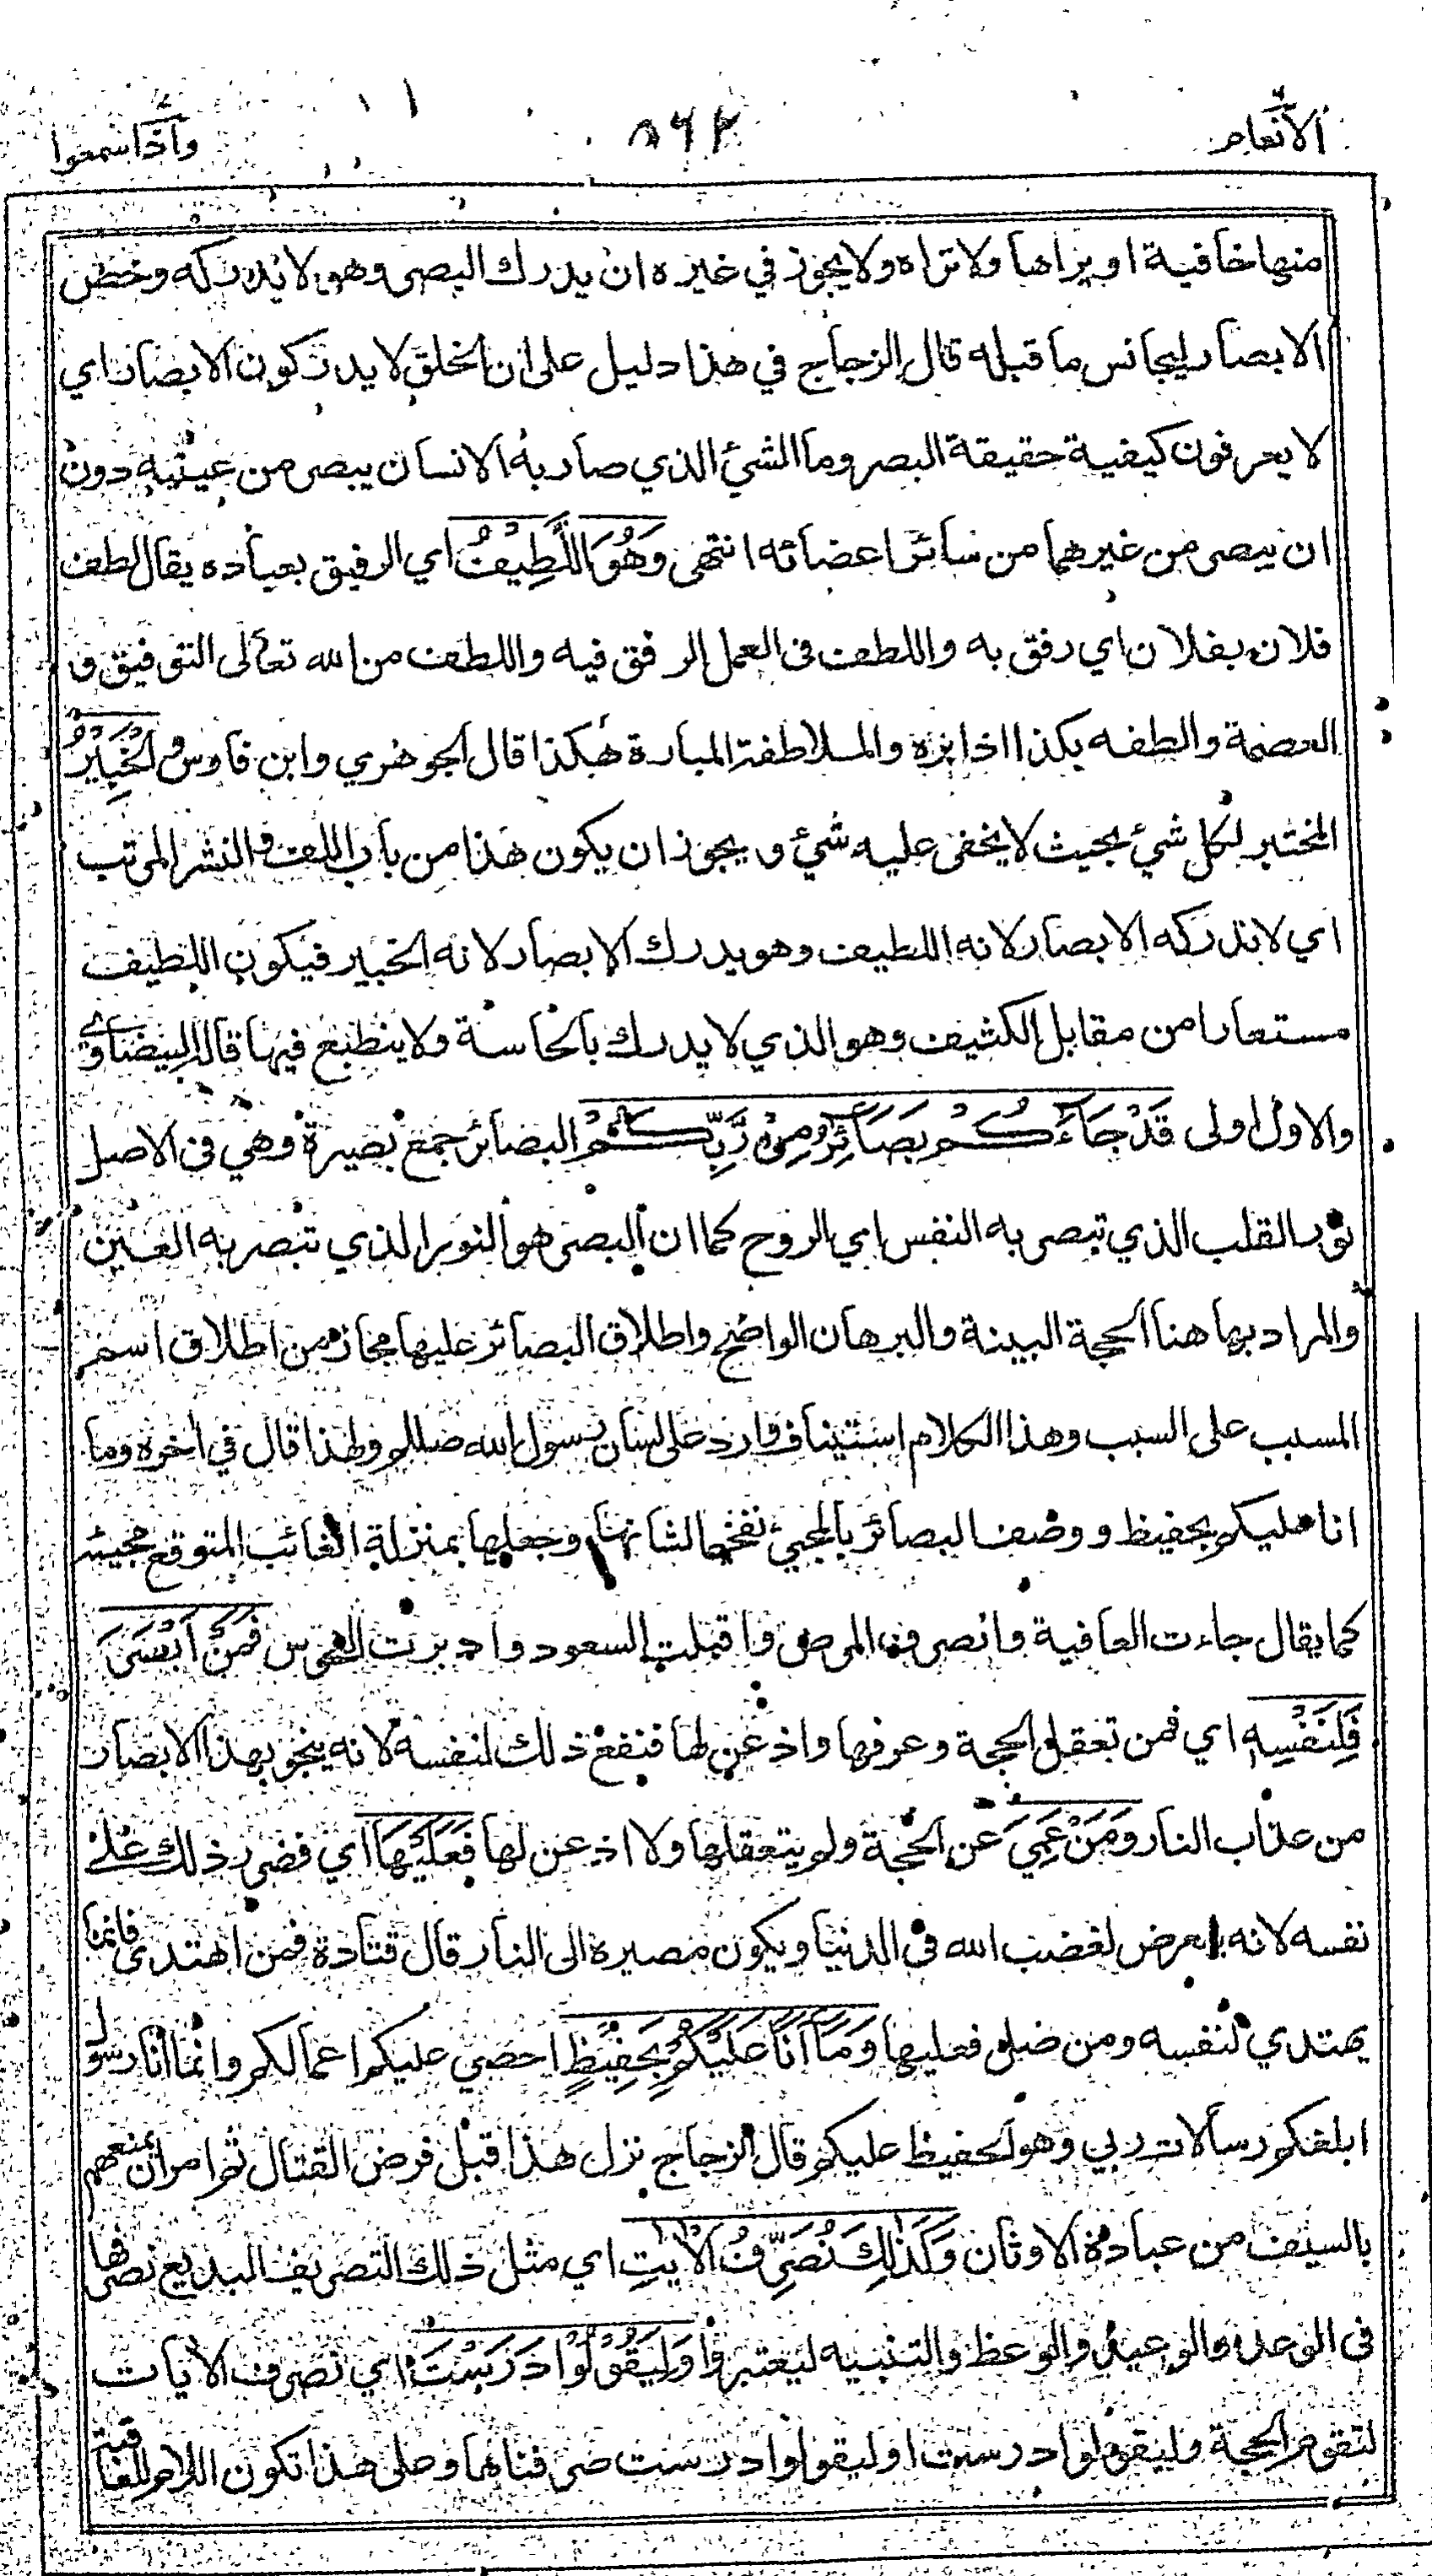 الانعام ٨٦٢ واذا سمعوا
منها خافية او يراها ولا تراه ولا يجوز في غيره ان يدرك البصر وهو لا يدركه وخص
الابصار ليجانس ما قبله قال الزجاج في هذا دليل على ان الخلق لا يدركون الابصار اي
لا يعرفون كيفية حقيقة البصر وما الشئ الذي صار به الانسان يبصر من عينيه دون
ان يبصر من غيرهما من سائر اعضائه انتهى وَهُوَ اللَّطِيْفُ اي الرفيق بعباده يقال لطف
فلان بفلان اي رفق به واللطف في العمل الرفق فيه واللطف من الله تعالى التوفيق و
العصمة والطفه بكذا اذا بره والملاطفة المبارة هكذا قال الجوهري وابن فارس الْخَبِيْرُ
المختبر لكل شئ بحيث لا يخفى عليه شئ ويجوز ان يكون هذا من باب اللف والنشر المرتب
اي لا تدركه الابصار لانه اللطيف وهو يدرك الابصار لانه الخبير فيكون اللطيف
مستعارا من مقابل الكثيف وهو الذي لا يدرك بالحاسة ولا ينطبع فيها قاله البيضاوي
والاول اولى قَدْ جَآءَكُمْ بَصَآئِرُ مِنْ رَّبِّكُمْ البصائر جمع بصيرة وهي في الاصل
نور القلب الذي تبصر به النفس اي الروح كما ان البصر هو النور الذي تبصر به العين
والمراد بها هنا الحجة البينة والبرهان الواضح واطلاق البصائر عليها مجاز من اطلاق اسم
المسبب على السبب وهذا الكلام استئناف وارد على لسان رسول الله صللم ولهذا قال في اخره وما
انا عليكم بحفيظ ووصف البصائر بالمجئ تفخيما لشانها وجعلها بمنزلة الغائب المتوقع مجيئه
كما يقال جاءت العافية وانصرف المرض واقبلت السعود وادبرت النحوس فَمَنْ اَبْصَرَ
فَلِنَفْسِهٖ اي فمن تعقل الحجة وعرفها واذعن لها فنفع ذلك لنفسه لانه ينجو بهذا الابصار
من عذاب النار وَمَنْ عَمِيَ عن الحجة ولم يتعقلها ولا اذعن لها فَعَلَيْهَا اي فضرر ذلك على
نفسه لانه يعرض لغضب الله في الدنيا ويكون مصيره الى النار قال قتادة فمن اهتدى فانما
يهتدي لنفسه ومن ضل فعليها وَمَآ اَنَا عَلَيْكُمْ بِحَفِيْظٍ احصي عليكم اعمالكم وانما انا رسول
ابلغكم رسالات ربي وهو الحفيظ عليكم قال الزجاج نزل هذا قبل فرض القتال ثم امر ان يمنعهم
بالسيف من عبادة الاوثان وَكَذٰلِكَ نُصَرِّفُ الْاٰيٰتِ اي مثل ذلك التصريف البديع نصرفها
في الوعد والوعيد والوعظ والتنبيه ليعتبروا وَلِيَقُوْلُوْا دَرَسْتَ اي نصرف الايات
لتقوم الحجة وليقولوا درست او ليقولوا درست صرفناها وعلى هذا تكون اللام للعاقبة